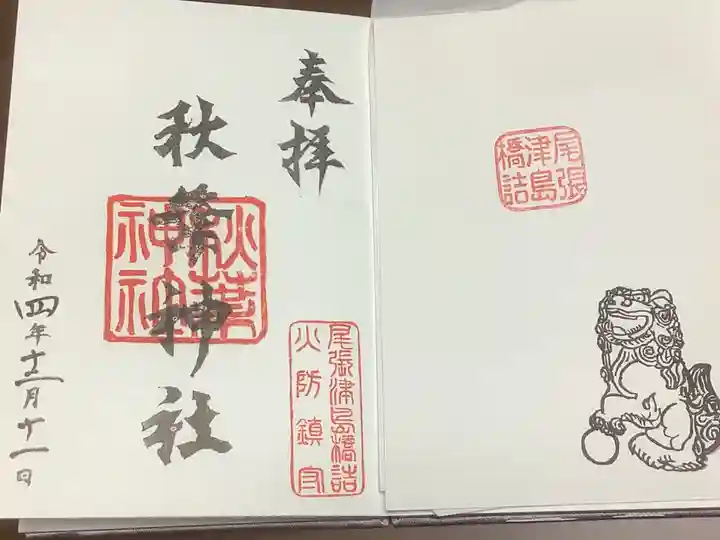 尾張
津島
橋詰
奉拝
尾張津島橋詰
火防鎮守
秋葉神社
秋葉
神社
令和四年十二月廿一日